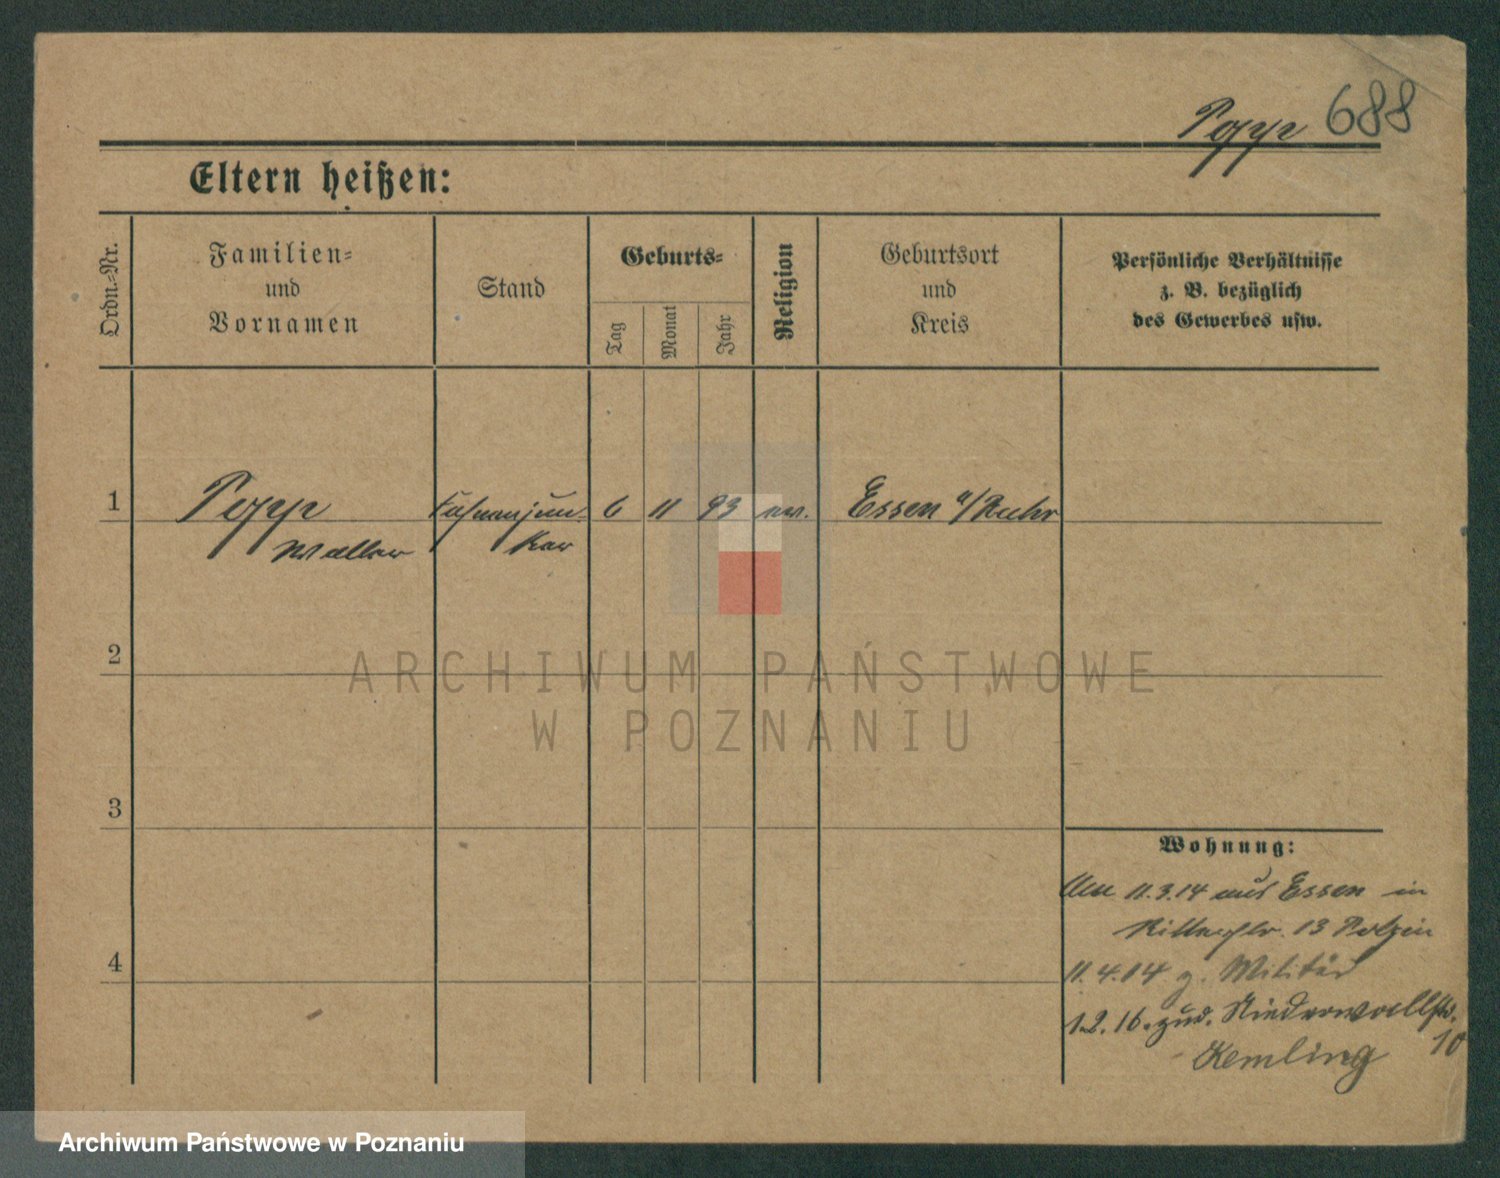 Popp 688
Eltern heißen:
Ordn.=Nr.
Familien=
und
Vornamen
Stand
Geburts=
Tag
Monat
Jahr
Religion
Geburtsort
und
Kreis
Persönliche Verhältnisse
z. B. bezüglich
des Gewerbes usw.
1 Popp Fahnenjun- 6 11 93 ev. Essen a/Ruhr
Walter ker
2
ARCHIWUM PAŃSTWOWE
W POZNANIU
3
Wohnung:
11.3.14 aus Essen in
Ritterstr. 13
4
11.4.14 z. Militär
1.2.16. zur. Niederwallstr.
10
Kemling
Archiwum Państwowe w Poznaniu